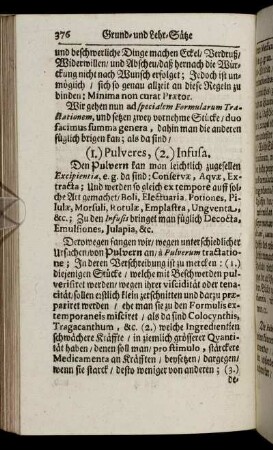 376 Grund- und Lehr-Sätze
und beschwerliche Dinge machen Eckel/ Verdruß/
Widerwillen/ und Abscheu/ daß hernach die Wür-
ckung nicht nach Wunsch erfolget; Jedoch ist un-
möglich/ sich so genau allzeit an diese Regeln zu
binden; Minima non curat Prætor.
Wir gehen nun ad specialem Formularum Tra-
ctationem, und setzen zwey vornehme Stücke/ duo
facimus summa genera, dahin man die andeten
füglich bringen kan; als da sind/
(1.) Pulveres, (2.) Infusa.
Den Pulvern kan man leichtlich zugesellen
Excipientia, e. g. da sind; Conservæ, Aqvæ, Ex-
tracta; Und werden so gleich ex tempore auff sol-
che Art gemachet/ Boli, Electuaria, Potiones, Pi-
lulæ, Morsuli, Rotulæ, Emplastra, Ungventa,
&c.; Zu den Infusis bringet man füglich Decocta,
Emulsiones, Julapia, &c.
Derowegen fangen wir/ wegen unterschiedlicher
Ursachen/ von Pulvern an/ à Pulverum tractatio-
ne; In deren Verschreibung ist zu mercken: (1.)
diejenigen Stücke/ welche mit Beschwerden pul-
verisiret werden/ wegen ihrer visciditât oder tena-
citât/ sollen erstlich klein zerschnitten und darzu præ-
pariret werden/ ehe man sie zu den Formulis ex-
temporaneis misciret/ als da sind Colocynthis,
Tragacanthum, &c. (2.) welche Ingredientien
schwächere Kräffte/ in ziemlich grösserer Qvanti-
tât haben/ denen soll man/ pro stimulo, stärckere
Medicamenta an Kräfften/ beysetzen/ dargegen/
wenn sie starck/ desto weniger of anderen; (3.)
de-